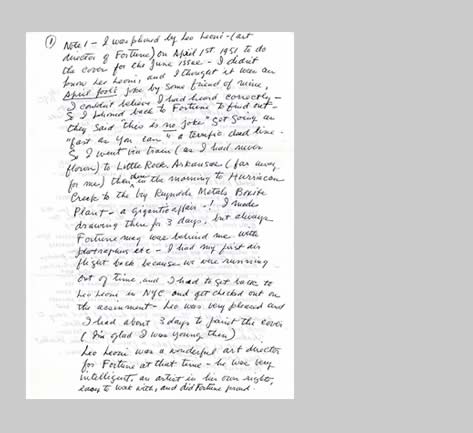 ① Note 1 - I was phoned by Leo Leoni - (art
director of Fortune) on April 1st. 1951 to do
the cover for the June issue - I didn't
know Leo Leoni, and I thought it was an
April fool's joke by some friend of mine,
I couldn't believe I had heard correctly -
So I phoned back to Fortune to find out -
they said "this is no joke" "get going as
fast as you can" - a terrific dead line -
So I went via train (as I had never
flown) to Little Rock, Arkansas (far away
for me) then in the morning to Hurricane
Creek to the big Reynolds Metals Boxite
Plant - a gigantic affair -! I made
drawings there for 3 days, but always
Fortune mag was behind me with
photographers etc - I had my first air
flight back because we were running
out of time, and I had to get back to
Leo Leoni in NYC and get checked out on
the assignment - Leo was very pleased and
I had about 3 days to paint the cover
(I'm glad I was young then)
Leo Leoni was a wonderful art director
for Fortune at that time - he was very
intelligent, an artist in his own right,
easy to work with, and did Fortune proud.